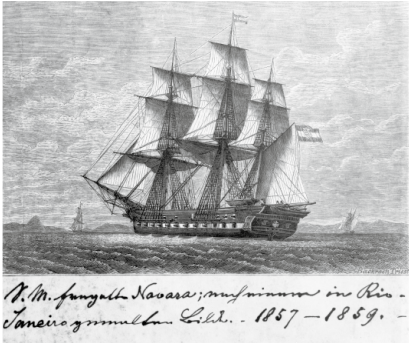 S. M. Fregatte Novara; nach einem in Rio-
Janeiro gemalten Bilde. - 1857 – 1859. -